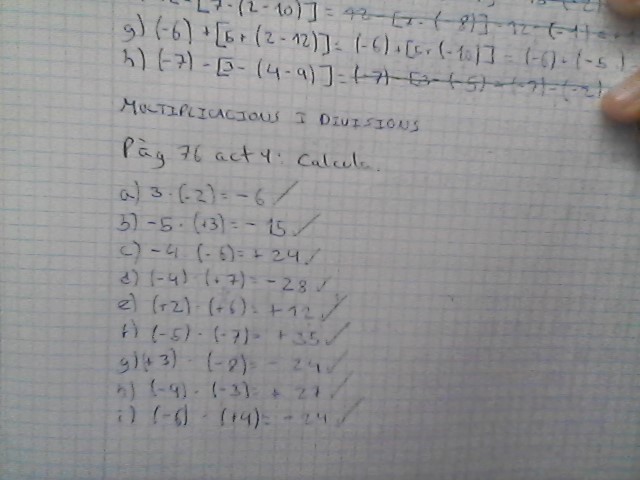 - [7 - (2 - 10)] = 42 - [7 - (-8)]
g) (-6) + [5 + (2 - 12)] = (-6) + [5 + (-10)] = (-6) + (-5)
h) (-7) - [3 - (4 - 9)] = (-7) - [3 - (-5)] =
MULTIPLICACIONS I DIVISIONS
Pàg 76 act 4: Calcula.
a) 3 · (-2) = -6
b) -5 · (+3) = -15
c) -4 · (-6) = +24
d) (-4) · (+7) = -28
e) (+2) · (+6) = +12
f) (-5) · (-7) = +35
g) (+3) · (-8) = -24
h) (-9) · (-3) = + 27
i) (-6) · (+4) = -24